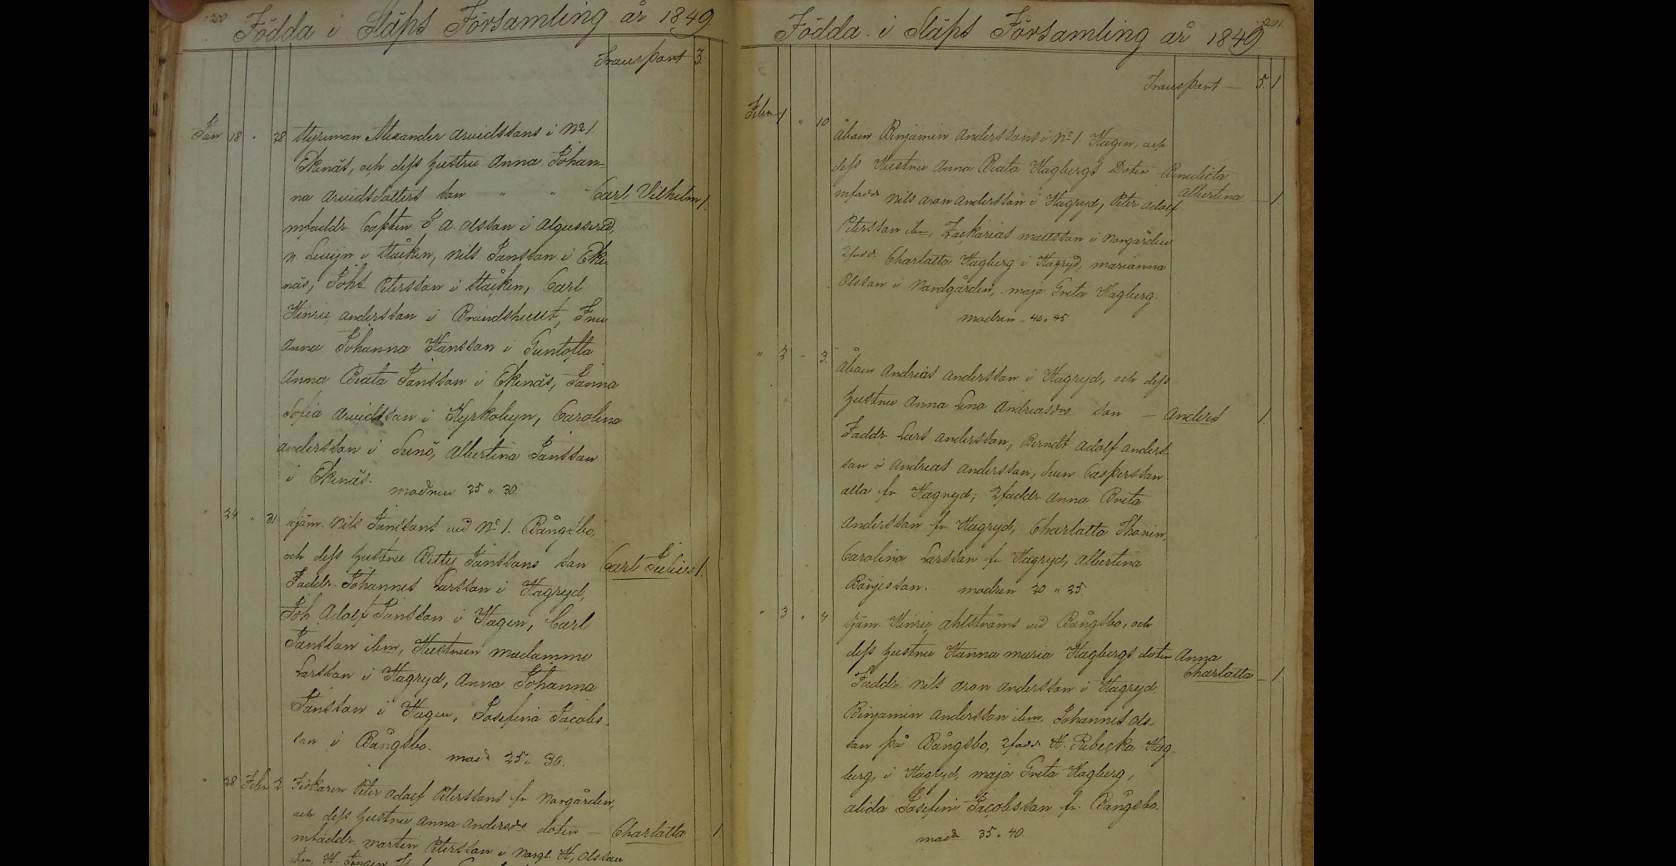 Födda i Släps Församling år 1849
Transport 3.
Jan 18 " 28 Styrman Alexander Arvidssons i No 1
Ekenäs, och dess hustru Anna Johan-
na Arvidsdotters son " " Carl Vilhelm 1.
mfaddr Capten E. A. Olsson i
i Ståken, Nils Jansson i Eke-
näs, Joh: Petersson i Ståken, Carl
Henric Andersson i Brandshult, Fru
Anna Johanna Hansson i Guntofta
Anna Beata Jansson i Ekenäs, Janna
Sofia Arvidsson i Kyrkobyn, Carolina
Andersson i Lunö, Albertina Jansson
i Ekenäs. modren 25 " 30.
" 24 " 31 Sjöm. Nils Janssons vid No 1. Bångsbo,
och dess hustru Betty Janssons son Carl Julius 1.
Faddr. Johannes Larsson i Hagryd,
Joh. Adolf Jansson i Hagen, Carl
Jansson ibm, Hustrun madamme
Larsson i Hagryd, Anna Johanna
Jansson i Hagen, Josefina Jacobs-
son i Bångsbo. mod 25 " 30.
" 28 Febr 2 Fiskaren Peter Adolf Peterssons fr Norgården,
och dess hustru Anna Andersdr doter — Charlotta 1
mfaddr. Morten Petersson i Norg. H. Olsson
Födda i Släps Församling år 1849
Transport — 5. 1.
Febr 1 " 10 Åboen Benjamin Anderssons i No 1 Hagen, och
dess Hustru Anna Beata Hagbergs Doter — Benedicta
Albertina — 1
mfaddr Nils Aron Andersson i Hagryd, Peter Adolf
Petersson ibm, Zackarias Mattsson i Norgården
Qfadd. Charlotta Hagberg i Hagryd, Marianna
Olsson i Nordgården, Maja Greta Hagberg.
modren — 40 " 45
" 2 " 3. Åboen Andreas Andersson i Hagryd, och dess
hustru Anna Lena Andreasdrs son — Anders 1.
Faddr Lars Andersson, Berndt Adolf Anders-
son o Andreas Andersson, Sven Caspersson
alla fr Hagryd; Qfaddr Anna Brita
Andersson fr Hagryd, Charlotta Thorin,
Carolina Larsson fr Hagryd, Albertina
Börjesson. modren 20 " 25
" 3 " 4 Sjöm. Henric Ahlströms vid Bångsbo, och
dess hustru Hanna Maria Hagbergs doter Anna
Charlotta — 1
Faddr. Nils Aron Andersson i Hagryd,
Benjamin Andersson ibm. Johannes Ols-
son på Bångsbo, Qfadd H. Rebecka Hag-
berg, i Hagryd, Maja Greta Hagberg,
Alida Josefin Jacobsson fr. Bångsbo.
modr 35 " 40.